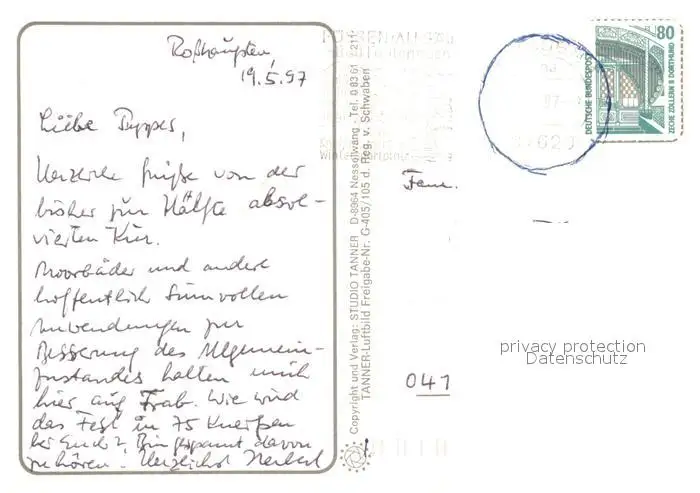 Roßhaupten,
19.5.97
Liebe Puppes,
Herzliche Grüße von der
bisher zur Hälfte absol-
vierten Kur.
Moorbäder und andere
hoffentlich sinnvollen
Anwendungen zur
Besserung des Allgemein-
zustandes halten mich
hier auf Trab. Wie wird
das Fest in 75
bei Euch? Bin gespannt davon
zu hören. Herzlichst Herbert
Copyright und Verlag: STUDIO TANNER D-8964 Nesselwang · Tel. 0 83 61
TANNER-Luftbild Freigabe-Nr. G-405/105 d. Reg. v. Schwaben
Fam.
041
80
DEUTSCHE BUNDESPOST
ZECHE ZOLLERN II DORTMUND
privacy protection
Datenschutz